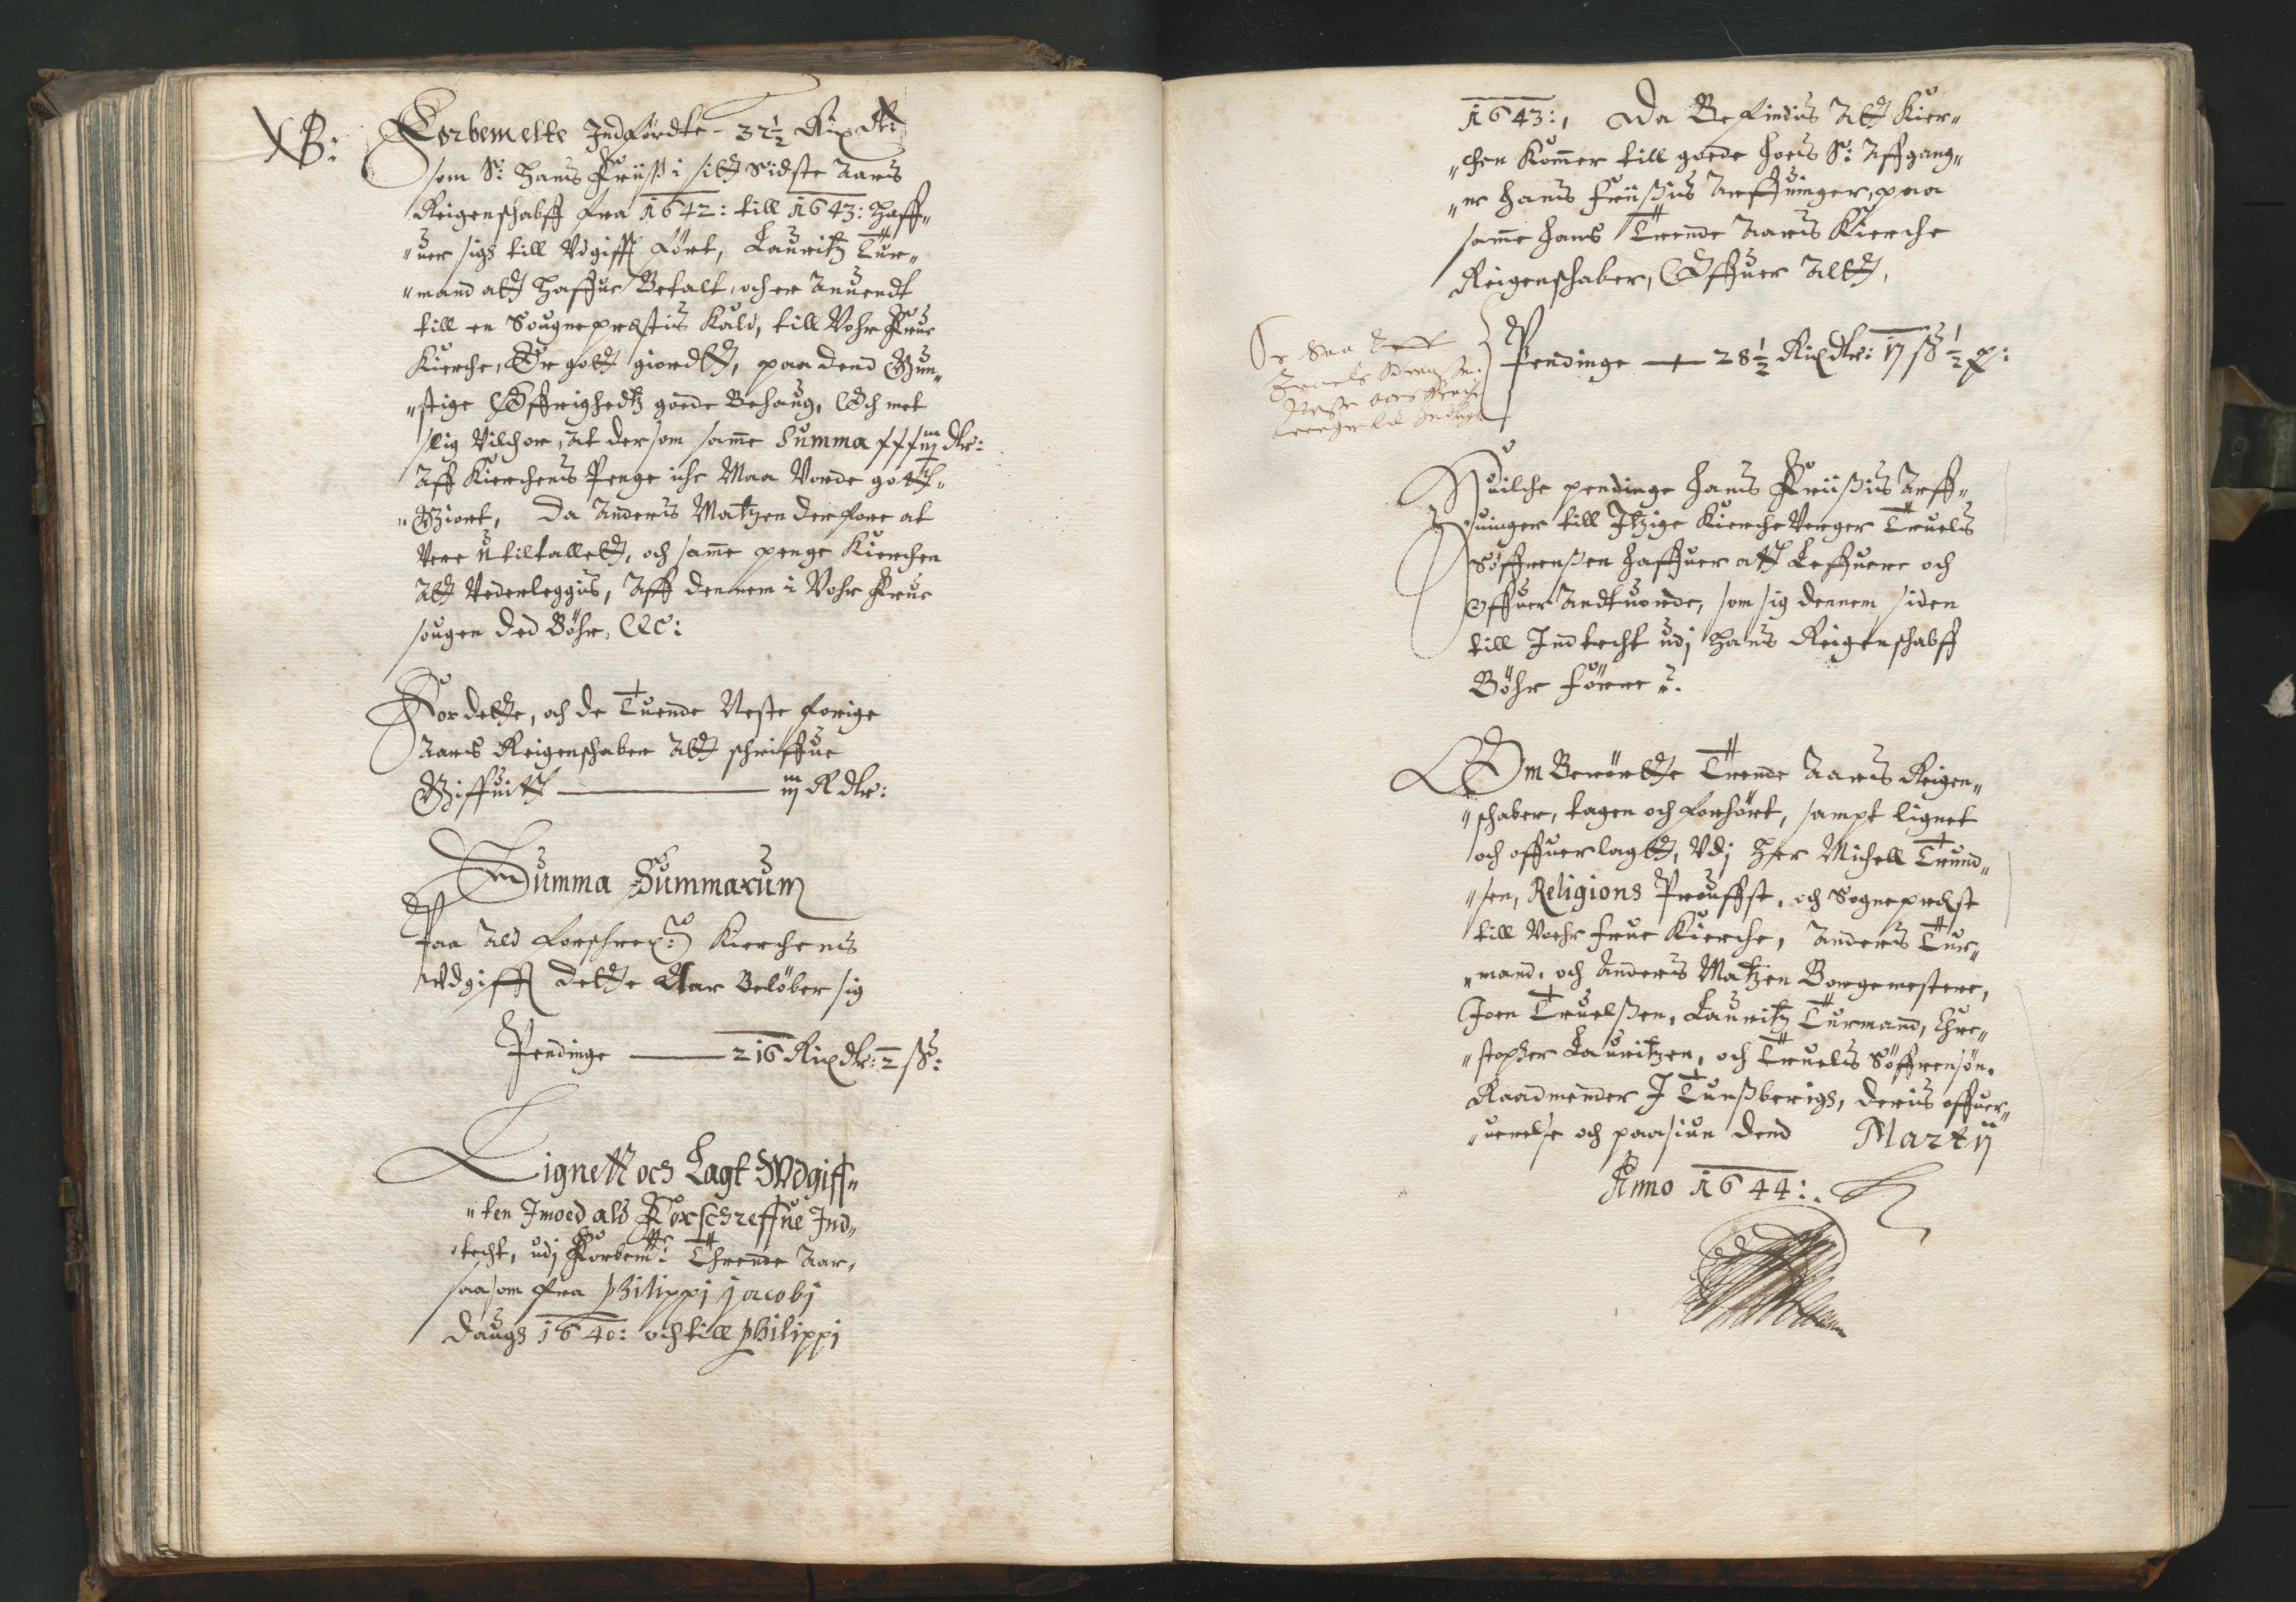 NB: Forbemelte Indførdte - 32½ Rix dlr:
som S: Hans Friiss i sitt Sidste Aars
Reigenschabff fra 1642: till 1643: Haff„
„uer sigh till Vdgifft ført, Lauritz Tur„
„mand att Haffue Betalt, och er Anuendt
till en Sougneprestis Kald, till Vohr Frue
Kierche, Er gott giordtt, paa dend Gun„
„stige Øffrighedtz goede Behaug, Och met
slig Vilchor, at der som samme Summa dlr:
Aff Kierchens Penge iche Maa Vorde gott„
„Giort, Da Anders Matzen derfore at
Vere u tiltallett, och samme penge Kierchen
att Vederleggis, Aff dennem i Vohr Frue
sougen ded Bøhr, Etc:
For dette, och de Tuende Neste forige
Aars Reigenschaber Att schriffue
Giffuitt ——— iij Rdlr:
Summa Summarum
Paa Ald forschreñ: Kierchens
Vdgifft dette Aar Beløber sig
Pendinge —— 216 Rix dlr: 2 ß:
Lignett och Lagt Vdgiff„
„ten Imoed ald Forschreffne Ind„
„techt, udj Forbemte: Thrende Aar,
saasom fra philippi jacobi
daugh 1640: och till philippi
1643:, Da Befindis Att Kier„
„chen Kommer till goede hoes S: Affgang„
„ne Hans Friisis Arffuinger, paa
samme hans Trende Aars Kierche
Reigenschaber, Offuer Altt,
Pendinge — 28½ Rix dlr: 17 ß ½
Huilche pendinge Hans Friisis Arff„
„uinger till Itzige Kierche Verger Truels
Søffrenssen haffuer att Leffuere och
Offuer Andtuorde, som sig dennem siden
till Indtecht udj Hans Reigenschabff
Bøhr føre etc.
Om Berørtte Trende Aars Reigen„
„schaber, tagen och forhørt, sampt lignet
och offuerlagtt, Vdj Her Michell Trund„
„sen, Religions Prouffst, och Sogneprest
till Voehr Frue Kierche, Anders Tur„
„mand, och Anders Matzen Borgemestere,
Joen Truelssen, Lauritz Turmand, Chre„
„stopher Lauritzen, och Truels Søffrensøn,
Raadmender I Tunsberigh, deris offuer„
„uerelse och paasiun dend Martij
Anno 1644: